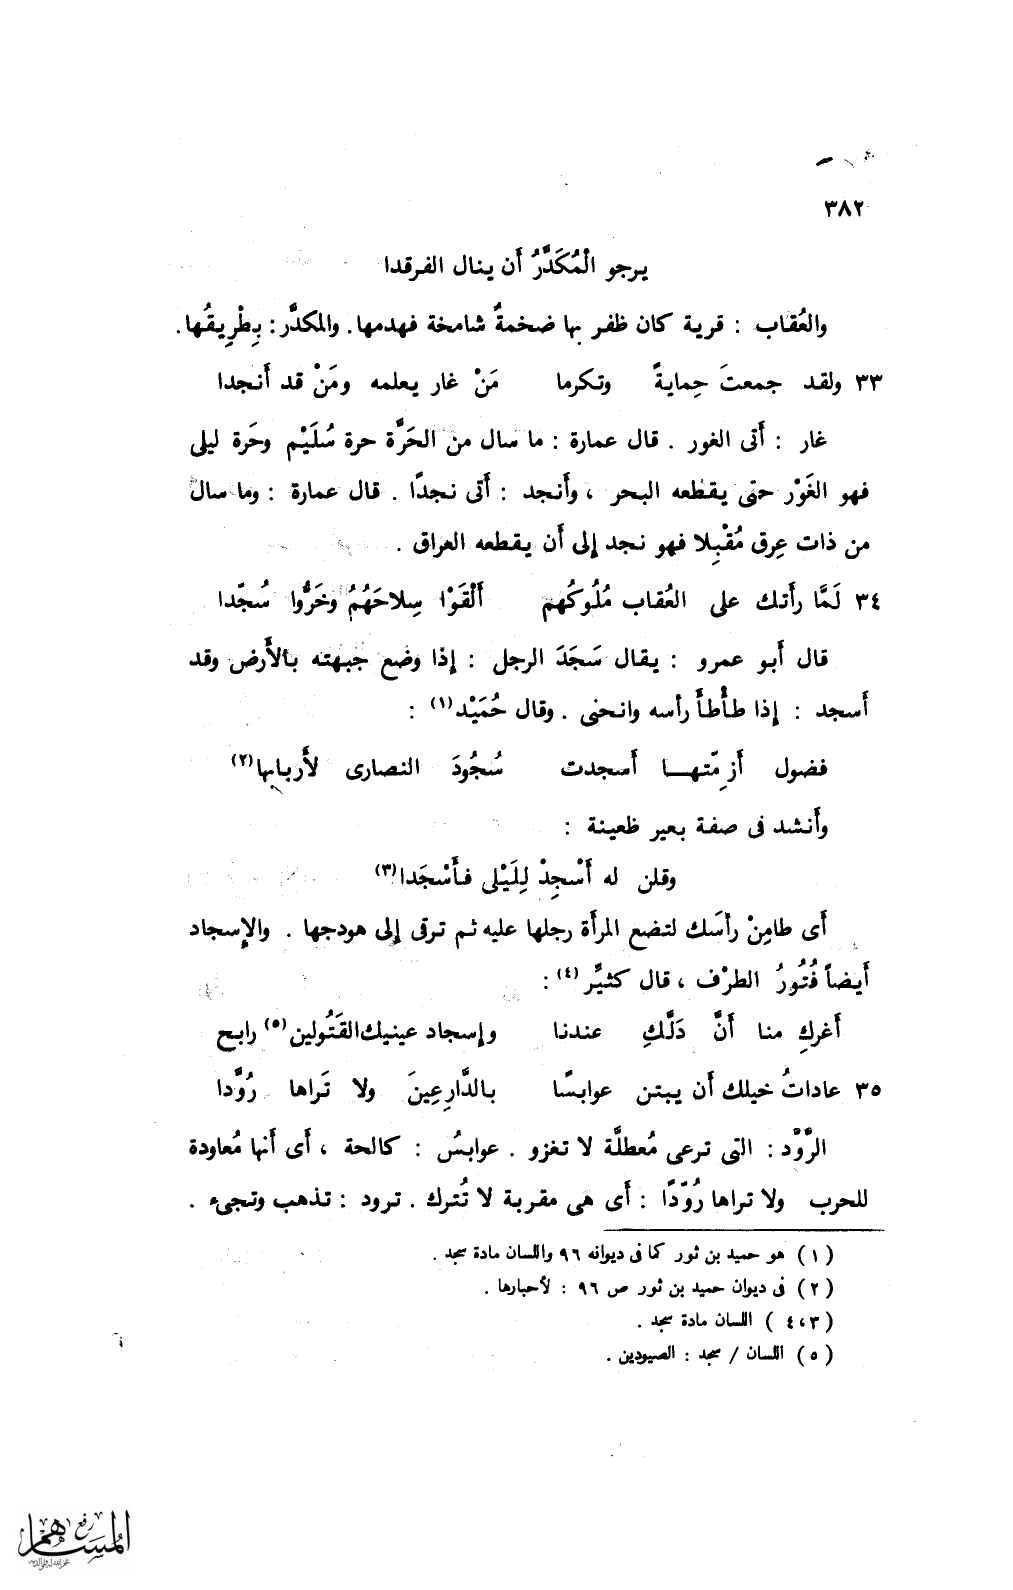 ٣٨٢
يرجو الْمُكَدَّرُ أن ينال الفرقدا
والعُقاب : قرية كان ظفر بها ضخمةٌ شامخة فهدمها. والمكدَّر: بِطْرِيقُها.
٣٣ ولقد جمعتَ حِمايةً وتكرما مَنْ غار يعلمه ومَنْ قد أَنجدا
غار : أَتى الغور . قال عمارة : ما سال من الحَرَّة حرة سُلَيْم وحَرة ليلى
فهو الغَوْر حتى يقطعه البحر ، وأَنجد : أَتى نجدًا . قال عمارة : وما سال
من ذات عِرق مُقْبِلا فهو نجد إلى أَن يقطعه العراق .
٣٤ لَمَّا رأَتك على العُقاب مُلُوكُهم أَلْقَوْا سِلاحَهُمُ وخَرُّوا سُجّدا
قال أَبو عمرو : يقال سَجَدَ الرجل : إذا وضع جبهته بالأَرض وقد
أَسجد : إذا طأْطأَ رأسه وانحنى . وقال حُمَيْد(١) :
فضول أَزِمّتهـــا أَسجدت سُجُودَ النصارى لأَربابها(٢)
وأَنشد فى صفة بعير ظعينة :
وقلن له أَسْجِدْ لِلَيْلى فأَسْجَدا(٣)
أَى طامِنْ رأسَك لتضع المرأَة رجلها عليه ثم ترقى إلى هودجها . والإسجاد
أَيضاً فُتُورُ الطرْف ، قال كثيِّر (٤) :
أَغركِ منا أَنَّ دَلَّكِ عندنا وإسجاد عينيك القَتُولين(٥) رابح
٣٥ عاداتُ خيلك أَن يبتن عوابسًا بالدَّارِعِينَ ولا تَراها رُوَّدا
الرَّوَّد : التى ترعى مُعطلَّة لا تغزو . عوابسُ : كالحة ، أَى أَنها مُعاودة
للحرب ولا تراها رُوّدًا : أَى هى مقربة لا تُترك . ترود : تذهب وتجىء .
( ١ ) هو حميد بن ثور كما فى ديوانه ٩٦ واللسان مادة سجد .
( ٢ ) فى ديوان حميد بن ثور ص ٩٦ : لأحبارها .
( ٣ ، ٤ ) اللسان مادة سجد .
( ٥ ) اللسان / سجد : الصيودين .
رفع
المساهم